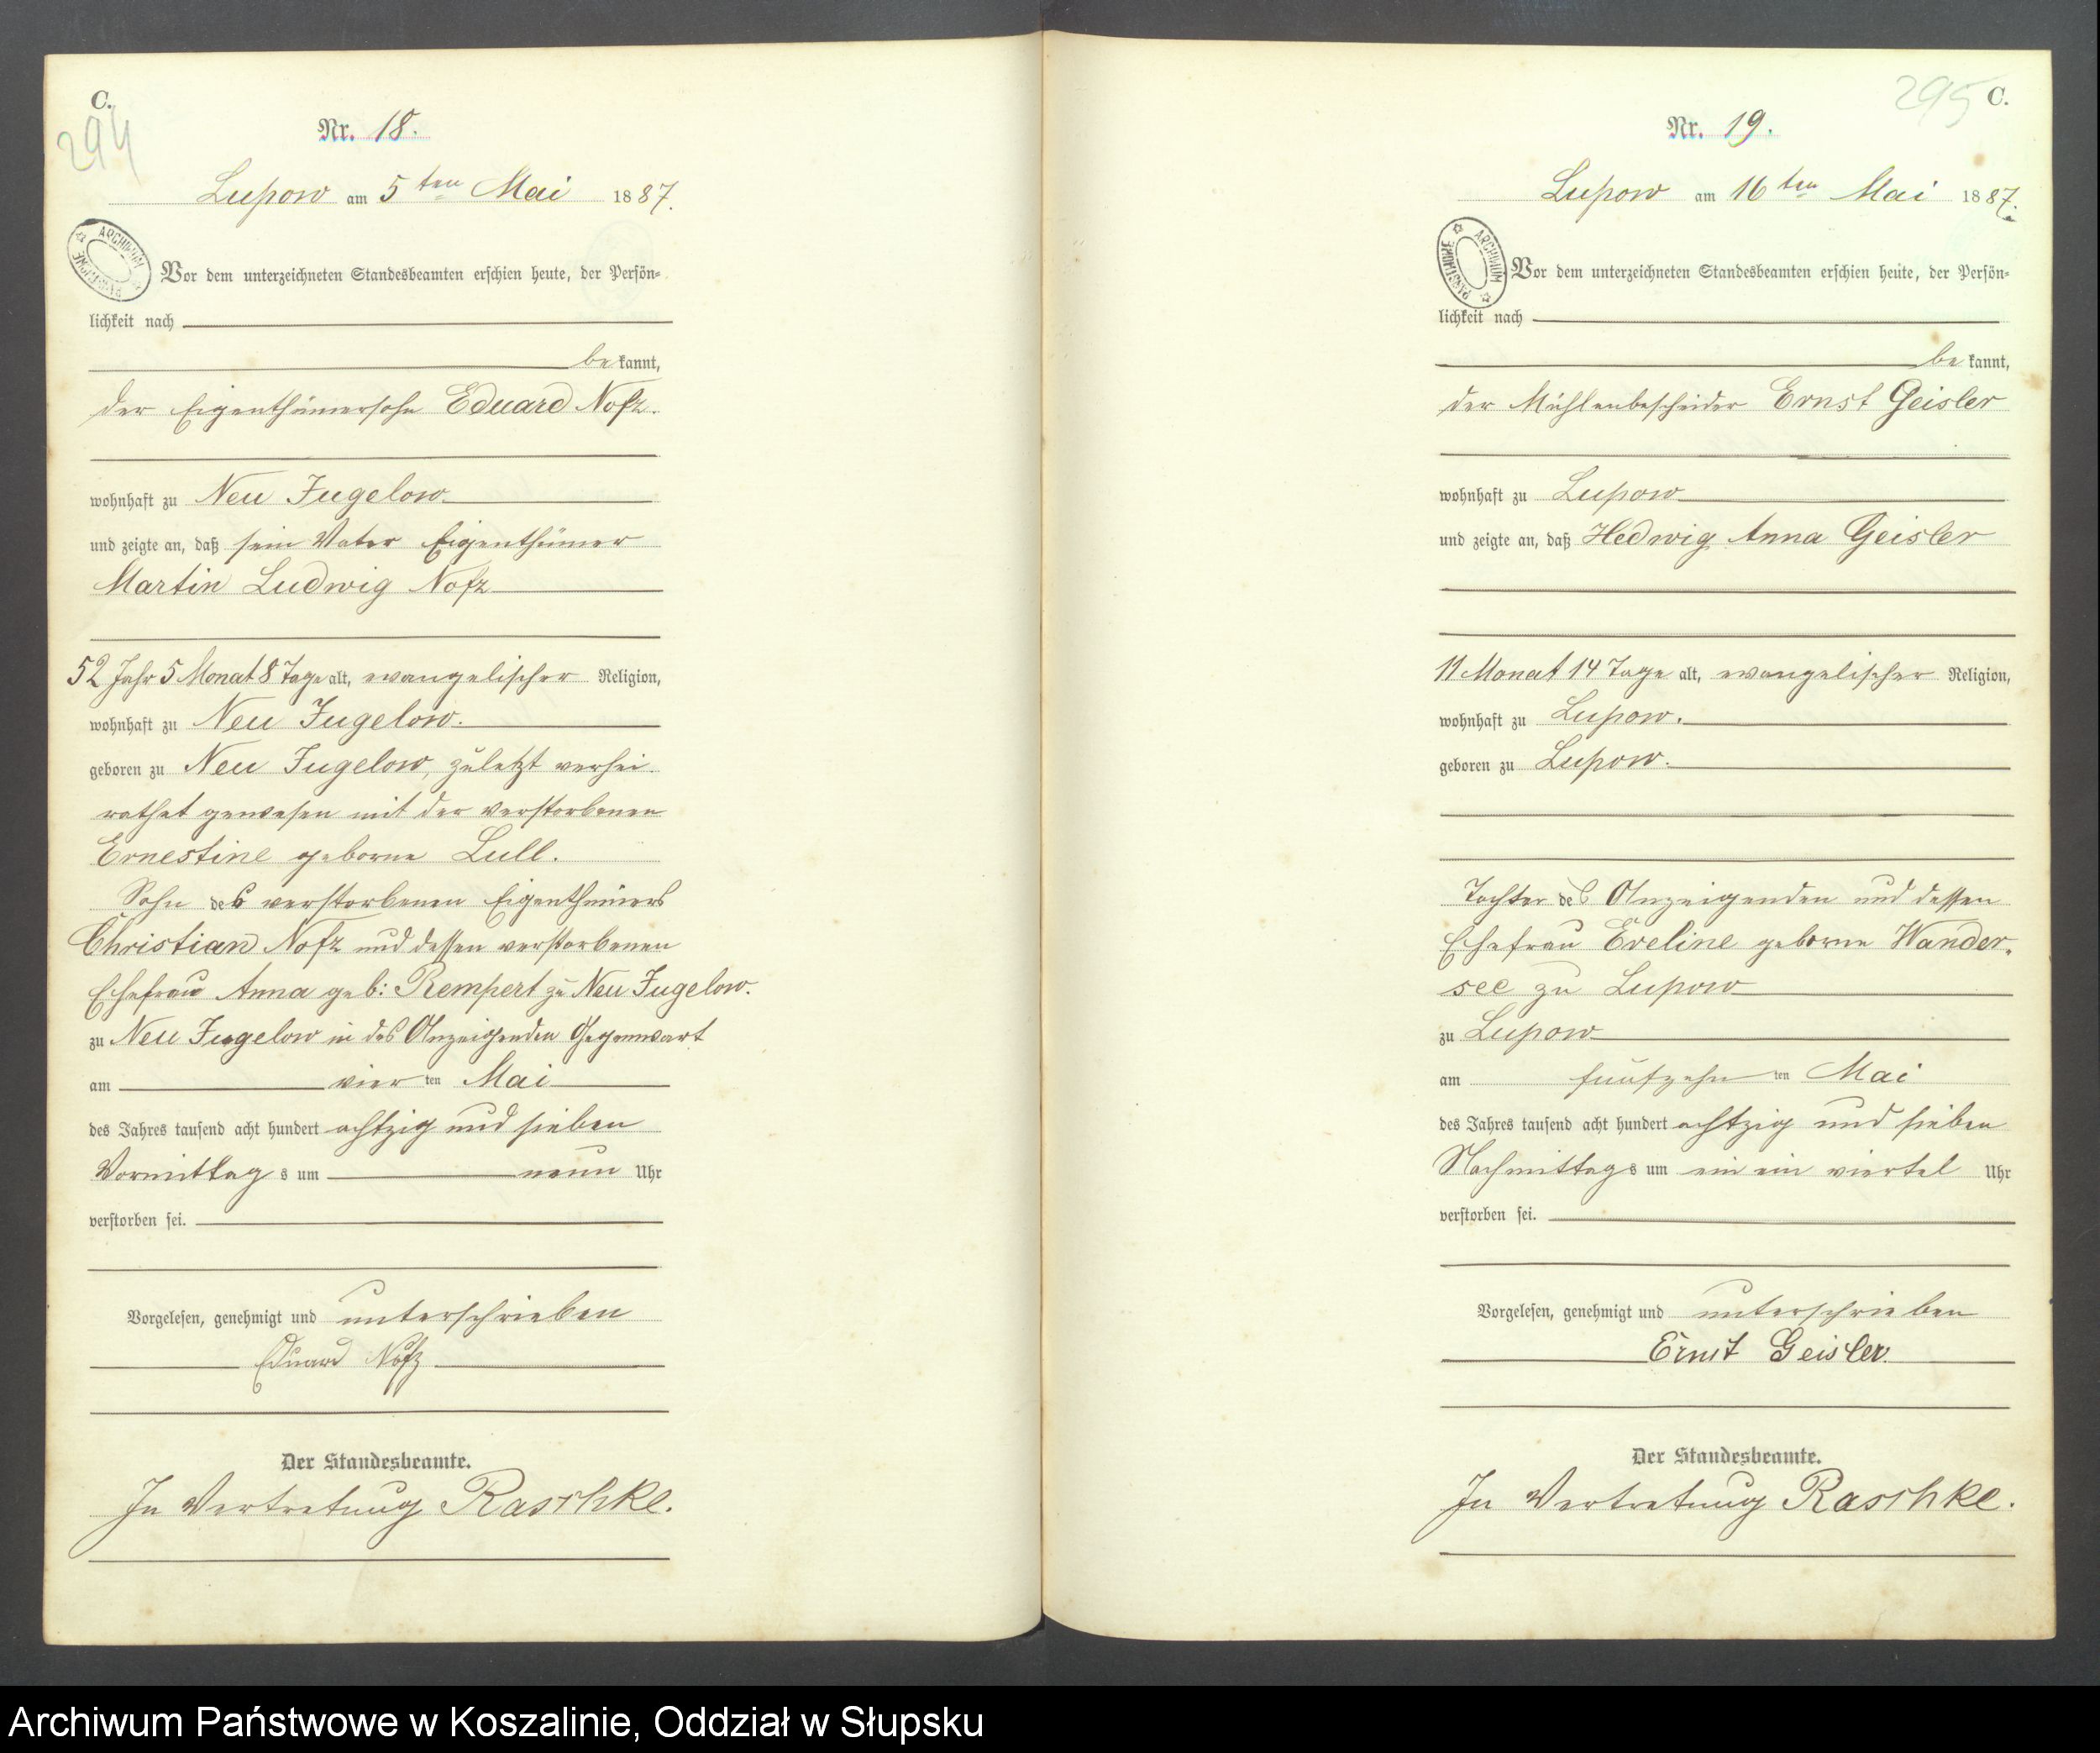 C.
294
Nr. 18.
Lupow am 5ten Mai 1887.
ARCHIWUM PAŃSTWOWE
Vor dem unterzeichneten Standesbeamten erschien heute, der Persön-
lichkeit nach
bekannt,
der Eigenthümersohn Eduard Nofz.
wohnhaft zu Neu Jugelow
und zeigte an, daß sein Vater Eigenthümer
Martin Ludwig Nofz
52 Jahr 5 Monat 8 Tage alt, evangelischer Religion,
wohnhaft zu Neu Jugelow.
geboren zu Neu Jugelow, zuletzt verhei-
rathet gewesen mit der verstorbenen
Ernestine geborne Lull.
Sohn des verstorbenen Eigenthümers
Christian Nofz und dessen verstorbenen
Ehefrau Anna geb: Rempert zu Neu Jugelow.
zu Neu Jugelow in des Anzeigenden Gegenwart
am vierten Mai
des Jahres tausend acht hundert achtzig und sieben
Vormittags um neun Uhr
verstorben sei.
Vorgelesen, genehmigt und unterschrieben
Eduard Nofz
Der Standesbeamte.
In Vertretung Raschke.
295 C.
Nr. 19.
Lupow am 16ten Mai 1887.
ARCHIWUM PAŃSTWOWE
Vor dem unterzeichneten Standesbeamten erschien heute, der Persön-
lichkeit nach
bekannt,
der Mühlenbescheider Ernst Geisler
wohnhaft zu Lupow
und zeigte an, daß Hedwig Anna Geisler
11 Monat 14 Tage alt, evangelischer Religion,
wohnhaft zu Lupow.
geboren zu Lupow.
Tochter des Anzeigenden und dessen
Ehefrau Eveline geborne Wander-
see zu Lupow
zu Lupow
am fünfzehnten Mai
des Jahres tausend acht hundert achtzig und sieben
Nachmittags um ein ein viertel Uhr
verstorben sei.
Vorgelesen, genehmigt und unterschrieben
Ernst Geisler.
Der Standesbeamte.
In Vertretung Raschke.
Archiwum Państwowe w Koszalinie, Oddział w Słupsku